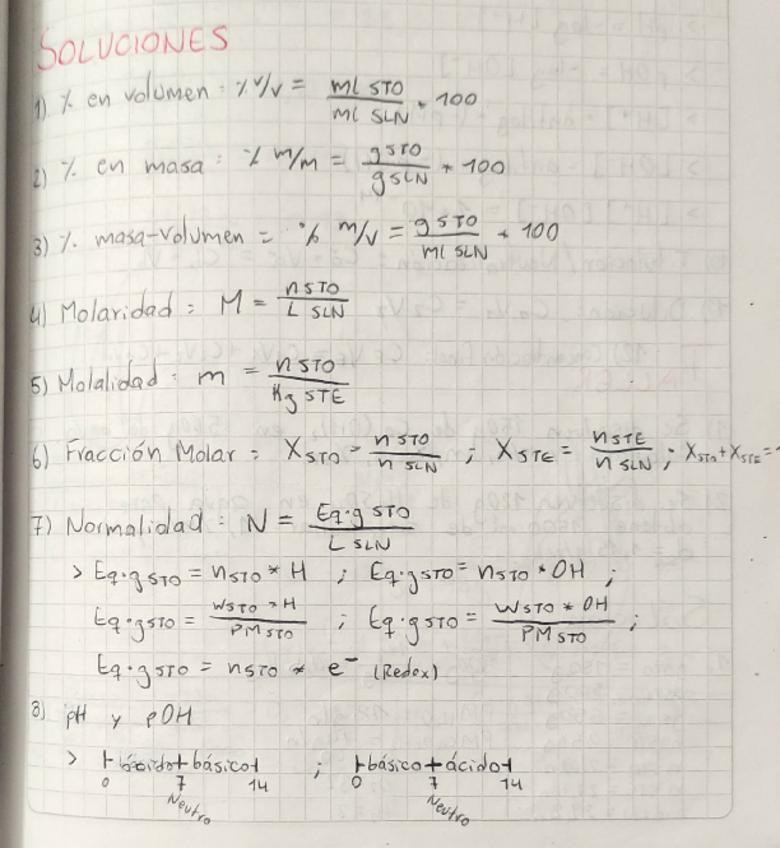 SOLUCIONES
1) % en volumen : % v/v = ml STO / ml SLN * 100
2) % en masa : % m/m = g STO / g SLN * 100
3) % masa-volumen = % m/v = g STO / ml SLN * 100
4) Molaridad : M = n STO / L SLN
5) Molalidad : m = n STO / Kg STE
6) Fracción Molar : X STO = n STO / n SLN ; X STE = n STE / n SLN ; X STO + X STE =
7) Normalidad : N = Eq·g STO / L SLN
> Eq·g STO = n STO * H ; Eq·g STO = n STO * OH ;
Eq·g STO = W STO * H / PM STO ; Eq·g STO = W STO * OH / PM STO ;
Eq·g STO = n STO * e⁻ (Redox)
8) pH y pOH
> ácido básico ; básico ácido
0 7 14 0 7 14
Neutro Neutro